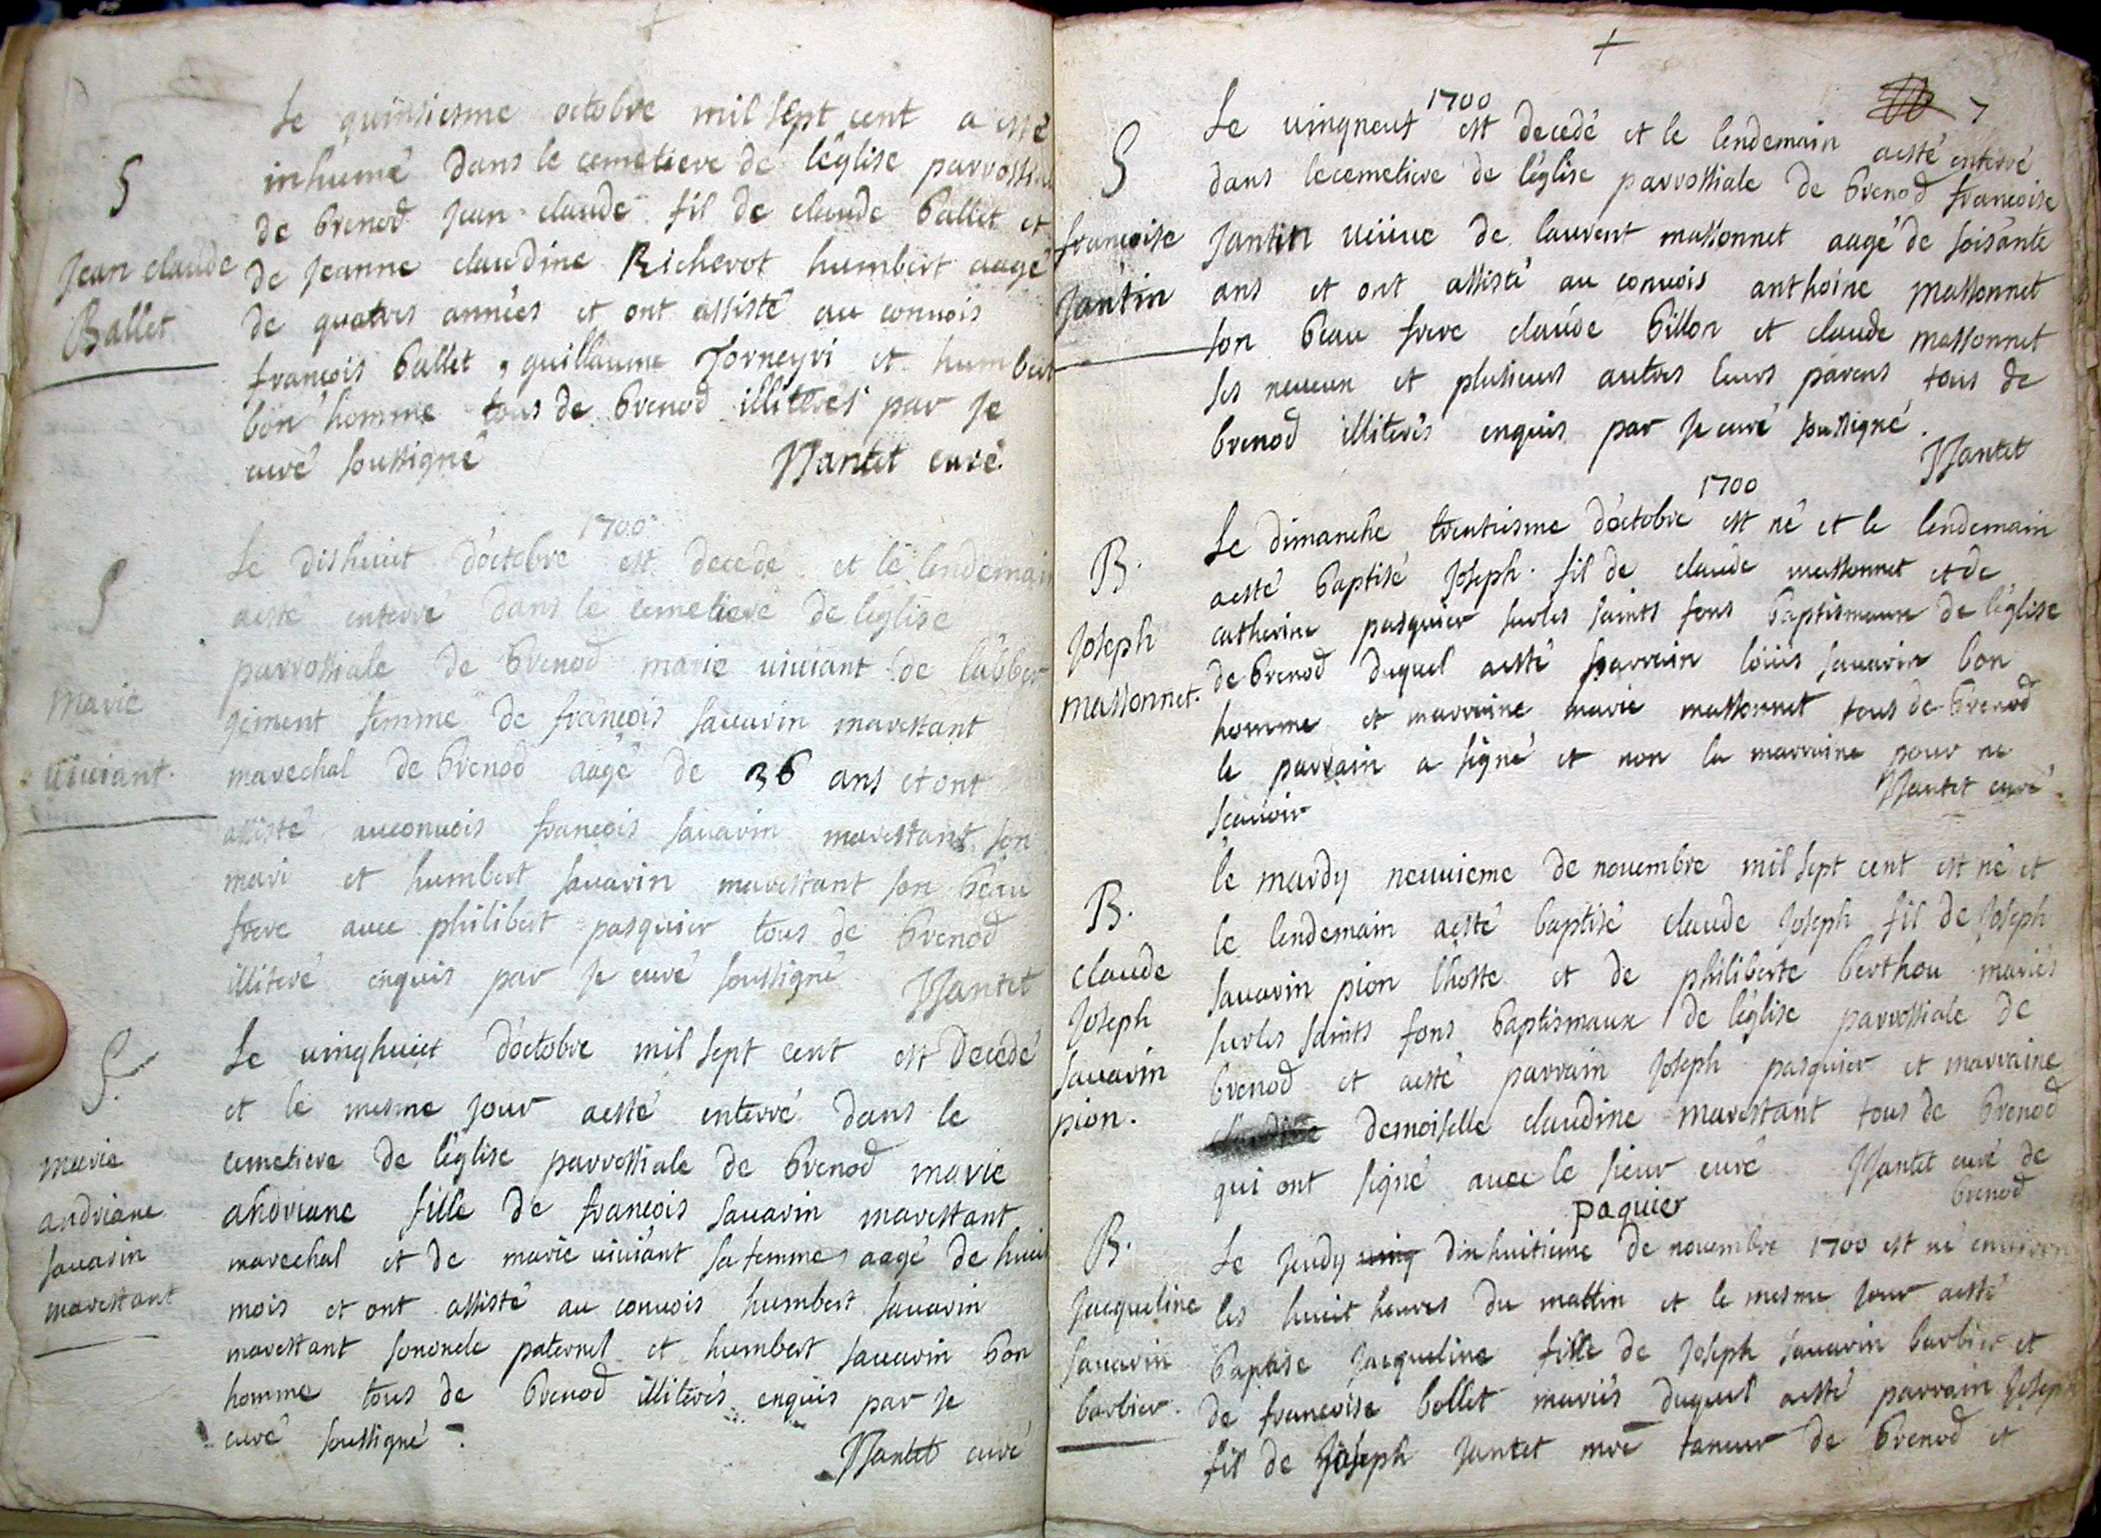 S
Jean claude
Ballet
Le quinsiesme octobre mil sept cent a esté
inhumé dans le cemetiere de l'église parrossiale
de brenod Jean claude fil de claude ballet et
de Jeanne claudine Richerot humbert aagé
de quatres années et ont assisté au convois
françois ballet, guillaume Jorneyri et humbert
bon homme tous de brenod illiterés par Je
curé soussigné
Nantet curé
S
Marie
viviant.
1700
Le dishuict d'octobre est decedé et le lendemain
aesté enterré dans le cemetiere de l'église
parrossiale de brenod marie viviant de l'abber
gement femme de françois savarin marestant
marechal de brenod aagé de 36 ans et ont
assisté auconvois françois savarin marestant son
mari et humbert savarin marestant son beau
frere avec philibert pasquier tous de brenod
illiteré enquis par Je curé soussigné Nantet
S.
Marie
andriane
savarin
marestant
Le vinghuict d'octobre mil sept cent est decedé
et le mesme jour aesté enterré dans le
cemetiere de l'église parrossiale de brenod marie
andriane fille de françois savarin marestant
marechal et de marie viviant sa femme aagé de huict
mois et ont assisté au convois humbert savarin
marestant sononcle paternel et humbert savarin bon
homme tous de brenod illiterés enquis par Je
curé soussigné.
Nantet curé
7
S
françoise
Jantin
1700
Le vingneuf est decedé et le lendemain aesté enterré
dans lecemetiere de l'église parrossiale de brenod françoise
Jantin veuve de laurent massonnet aagé de soisante
ans et ont assisté au convois anthoine massonnet
son beau frere claude billon et claude massonnet
ses neveux et plusieurs autres leurs parens tous de
brenod illiterés enquis par Je curé soussigné.
Nantet
B.
Joseph
massonnet.
1700
Le dimanche trentiesme d'octobre est né et le lendemain
aesté baptisé Joseph fil de claude massonnet et de
catherine pasquier surles saints fons baptismaux de l'église
de brenod duquel aesté parrain loüis savarin bon
homme et marraine marie massonnet tous de brenod
le parrain a signé et non la marraine pour ne
scavoir
Nantet curé.
B.
claude
Joseph
savarin
pion.
le mardy neuvieme de novembre mil sept cent est né et
le lendemain aesté baptisé claude Joseph fil de Joseph
savarin pion lhoste et de philiberte berthou mariés
surles saints fons baptismaux de l'église parrossiale de
brenod et aesté parrain Joseph pasquier et marraine
claudine demoiselle claudine marestant tous de brenod
qui ont signé avec le sieur curé Nantet curé de
brenod
paquier
B.
Jacqueline
savarin
barbier.
Le Jeudy ving dixhuitieme de novembre 1700 est né environ
les huict heures du mattin et le mesme jour aesté
baptisé Jacqueline fille de Joseph savarin barbier et
de françoise bollet mariés duquel aesté parrain Joseph
fil de Joseph Jantet mre taneur de brenod et